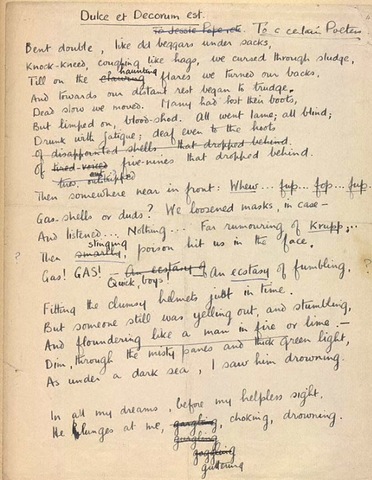 Dulce et Decorum est.
To Jessie Pope etc. To a certain Poetess
Bent double, like old beggars under sacks,
Knock-kneed, coughing like hags, we cursed through sludge,
haunting
Till on the clawing flares we turned our backs,
And towards our distant rest began to trudge.
Dead slow we moved. Many had lost their boots,
But limped on, blood-shod. All went lame; all blind;
Drunk with fatigue; deaf even to the hoots
Of disappointed shells that dropped behind.
Of tired-voiced five-nines that dropped behind.
outstripped
Then somewhere near in front: Whew... fup... fop... fup...
Gas-shells or duds? We loosened masks, in case—
And listened... Nothing... Far rumouring of Krupp;..
stinging
Then smarting poison hit us in the face.
Gas! GAS! — An ecstasy of An ecstasy of fumbling,
Quick, boys!
Fitting the clumsy helmets just in time.
But someone still was yelling out, and stumbling,
And floundering like a man in fire or lime.—
Dim, through the misty panes and thick green light,
As under a dark sea, I saw him drowning.
In all my dreams, before my helpless sight.
He plunges at me, gargling, choking, drowning.
gurgling
goggling
guttering